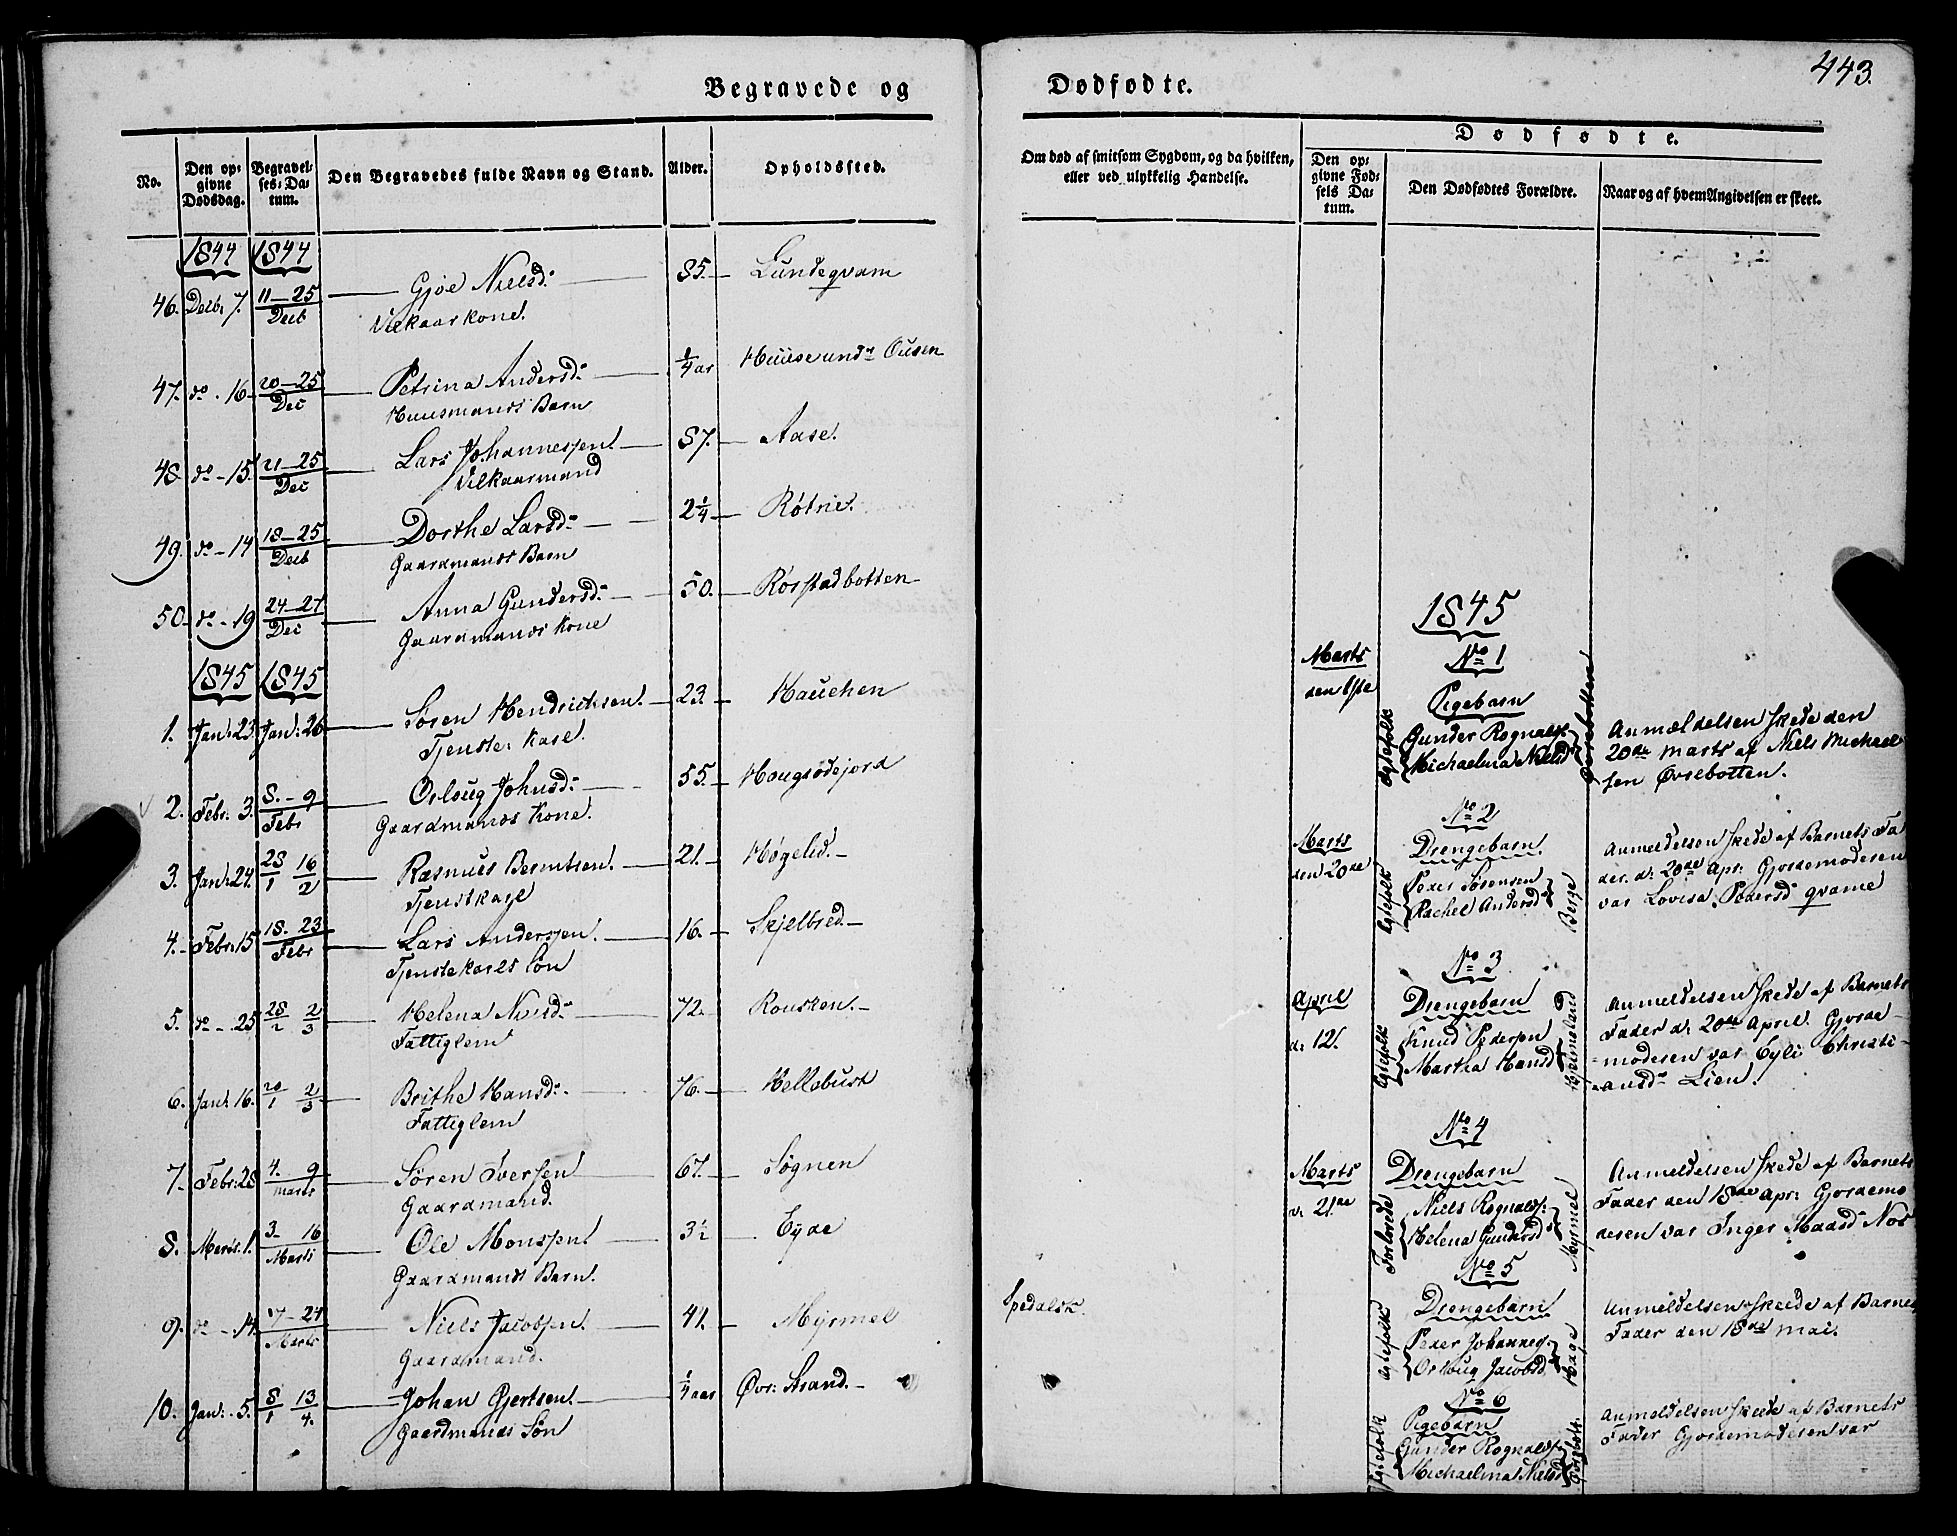 443.
Begravede og Dødfødte.
No.
Den opgivne Dødsdag.
Begravelses-Datum.
Den Begravedes fulde Navn og Stand.
Alder.
Opholdssted.
Om død af smitsom Sygdom, og da hvilken, eller ved ulykkelig Hændelse.
Dødfødte.
Den opgivne Fødsels Datum.
Den Dødfødtes Forældre.
Naar og af hvem Angivelsen er skeet.
1844 1844
46. Decb: 7. 11-25 Decb Gjøe Nielsd: 85. Lundeqvam
Vilkaarkone.
47. do - 16 20-25 Dec Petrina Andersd: 1/4 ar Huuse undr Ousen
Huusmands Barn
48 do - 15. 21-25 Dec Lars Johannessen 87. Aase.
Vilkaarmand
49. do - 14 18-25 Decb Dorthe Larsd: 2 1/4 Røtne.
Gaardmands Barn
50. do - 19 24-27 Dec Anna Gundersd: 50. Rørstadbotten
Gaardmands Kone
1845 1845
1. Jan: 23. Jan: 26 Søren Hendriksen. 23. Hauehen
Tjenste Karl.
2. Febr: 3. 8.-9 Febr Orloug Johnsd: 55. Hougsødejord
Gaardmands Kone.
3. Jan: 24. 28/1 16/2 Rasmus Berntsen. 21. Høgelid.
4. Febr: 15 18. 23 Febr Lars Andersen. 16. Skjelbred.
Tjenstekarls Søn
5. do - 25 28/2 2/3 Helena Nilsd: 72. Rousken.
Fattiglem
6. Jan: 16. 20/1 2/3 Brithe Hansd: 76. Hellebust
Fattiglem
7. Febr: 28 4. 9 Marts Søren Iversen 67. Søgnen
Gaardmand.
8. Marts 1. 3. 16 Marts Ole Monssen 3½ Eyde
Gaardmands Barn.
9. do - 14. 17-24 Marts Niels Jacobsen. 41. Myrmel Spedalsk.
Gaardmand.
10. Jan: 5. 8/1 13/4. Johan Gjertsen. 1/4 aar Øvr: Strand.
Gaardmands Søn
1845
Marts den 1ste
No 1
Pigebarn
Egtefolk
Gunder Rognalds:
Michaelma Nielsd
Øvrebotten
Anmældelsen skede den
20de Marts af Niels Michael
sen Øvrebotten.
No 2
Marts den 20de
Drengebarn.
Egtefolk
Peder Sørensen
Rachel Andersd:
Berge
Anmeldelsen skede af Barnets Fa
der. d: 20de Apr: Gjordemoderen
var Lovisa Pedersd qvame
No 3
April d: 12.
Drengebarn
Egtefolk
Knud Pedersen
Martha Hansd:
Hjelmeland
Anmeldelsen skede af Barnets
Fader d: 20de April. Gjorde-
moderen var Eyli Christi-
ansdr Lien.
No 4
Marts d: 21de
Drengebarn
Forlovede
Niels Rognalds:
Helena Gundersd:
Myrmel
Anmeldelsen skede af Barnets
Fader den 18de Apr: Gjordemo
deren var Inger Maasd Nos
No 5
Drengebarn
Egtefolk
Peder Johannes:
Orloug Jacobsd
Hage
Anmeldelsen skede af Barnets
Fader den 18de Mai.
No 6
Pigebarn
Egtefolk
Gunder Rognalds:
Michaelma Nielsd
Anmeldelsen skede af Barnets
Fader Gjordemoderen var